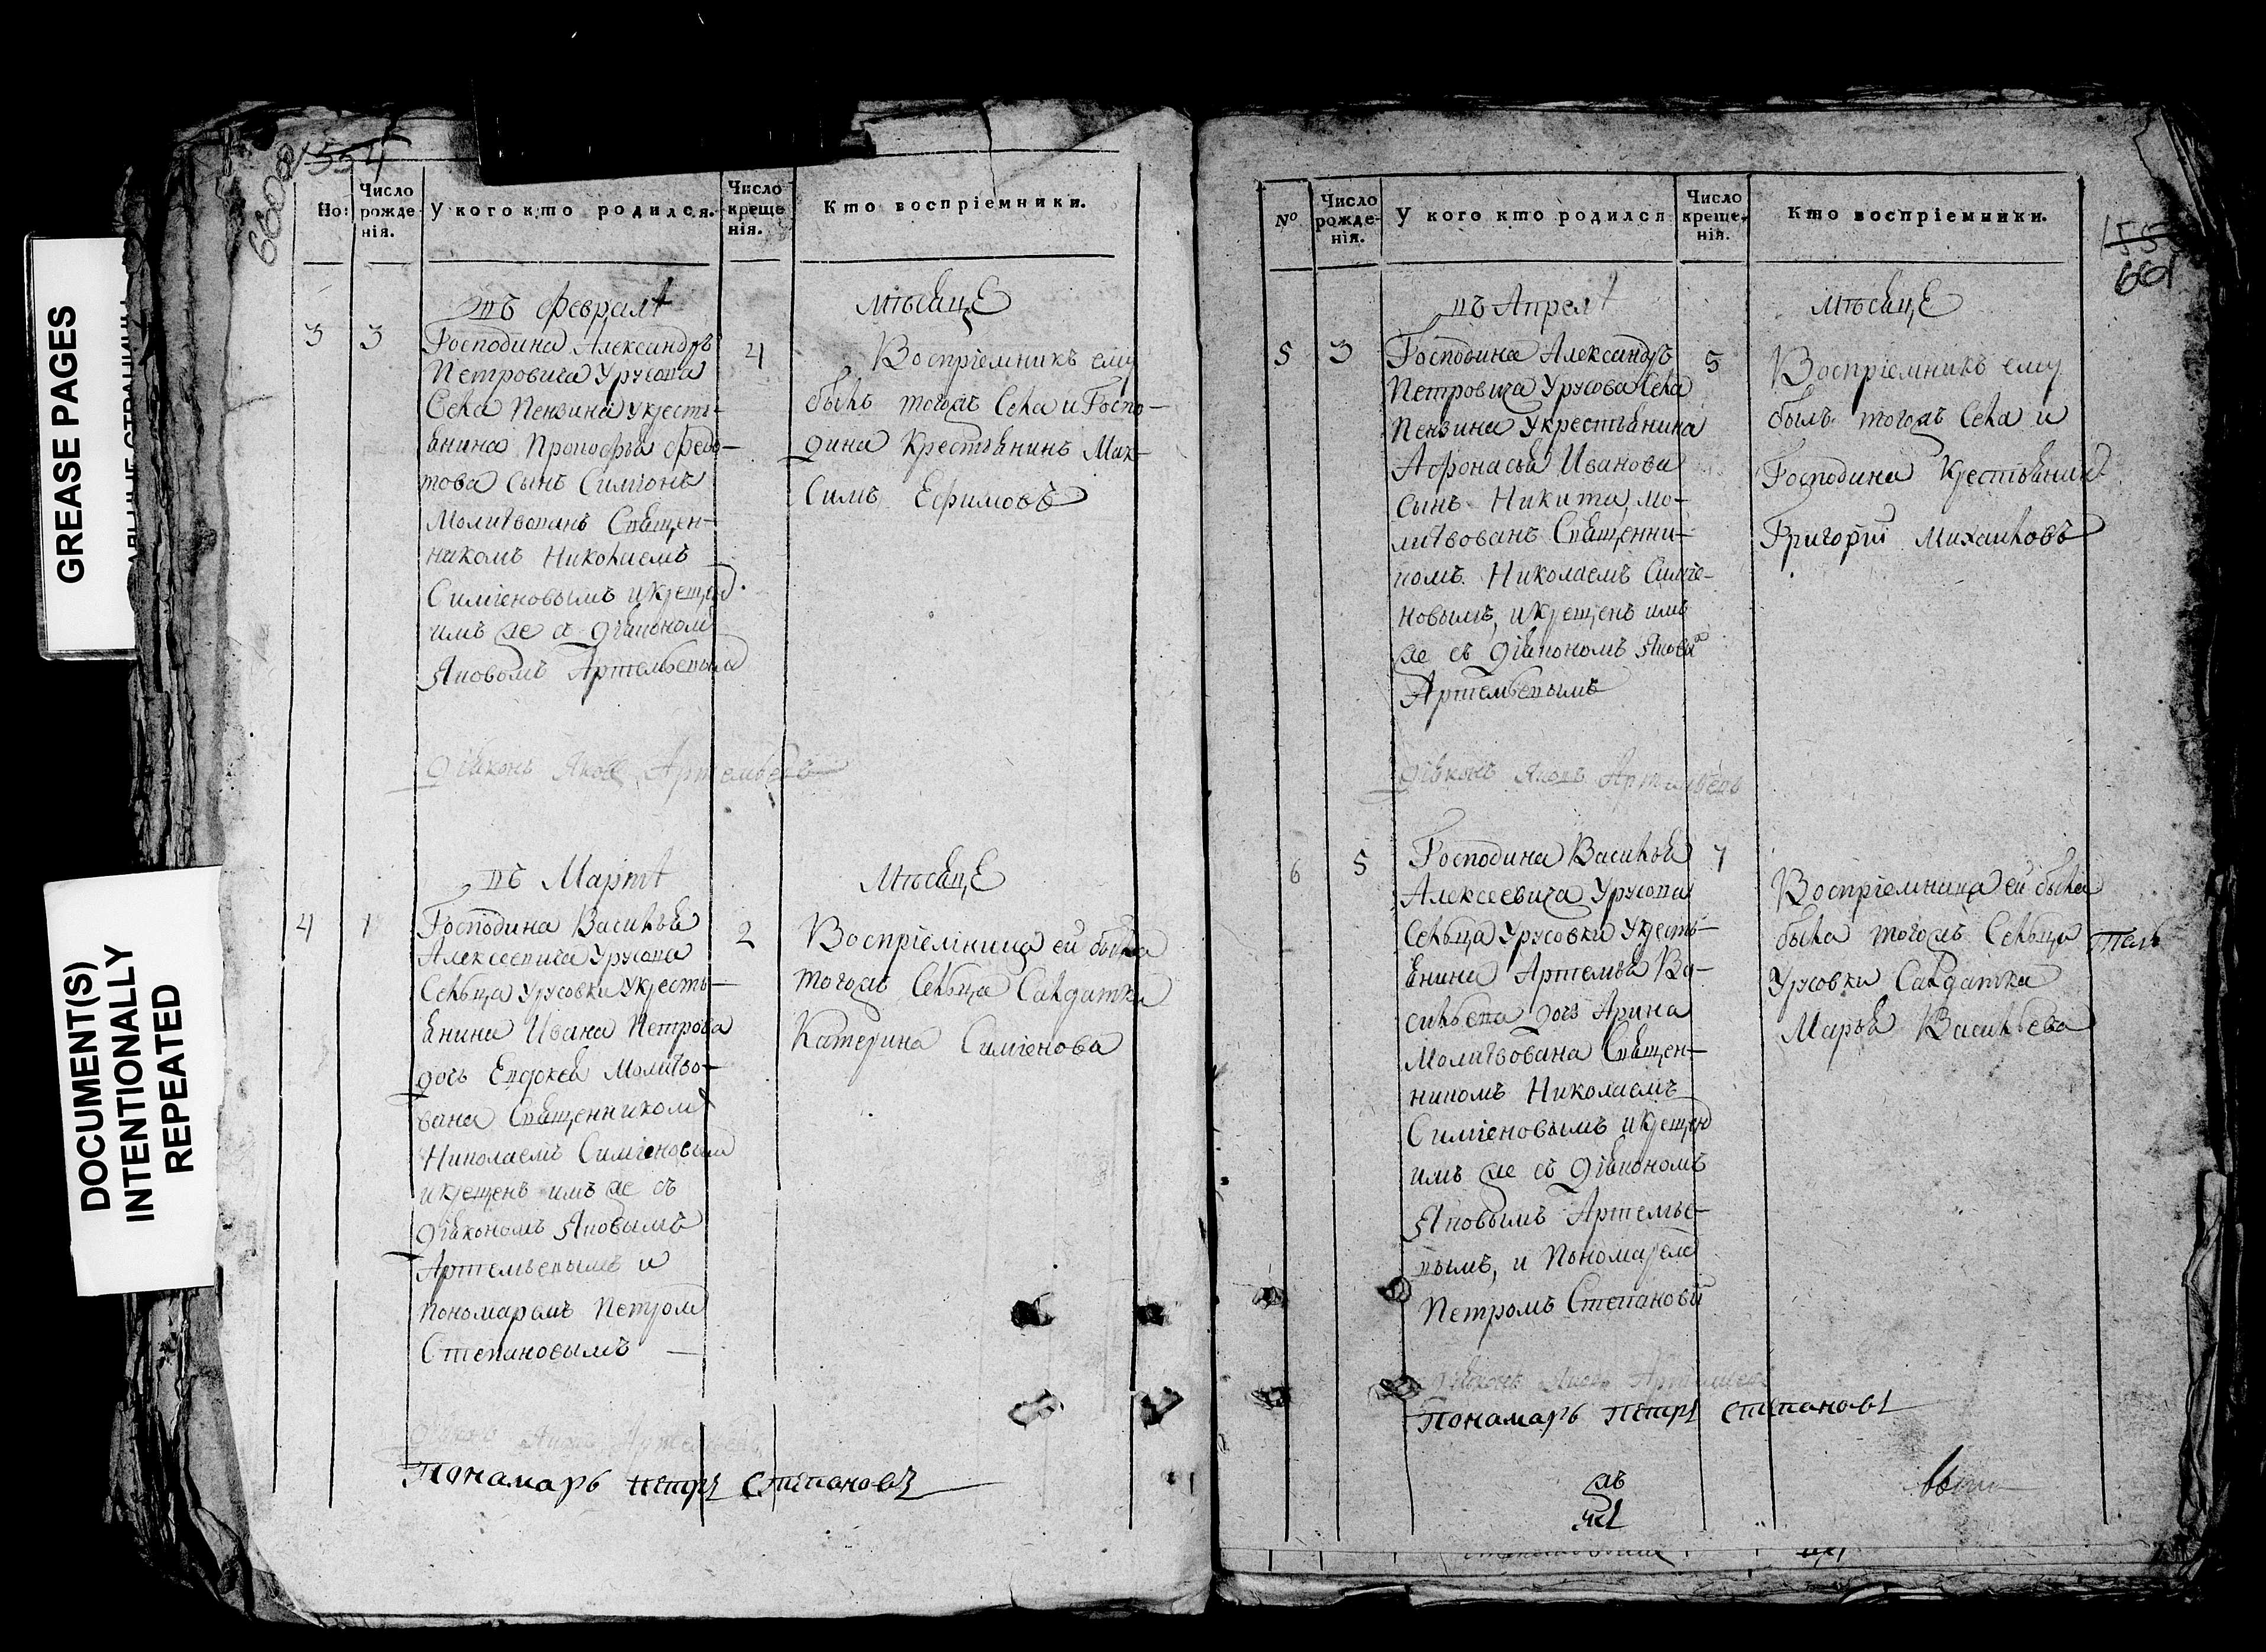 GREASE PAGES
DOCUMENT(S)
INTENTIONALLY
REPEATED
600
554
Но:
Число рожденія.
У кого кто родился.
Число крещенія.
Кто воспріемники.
въ Февралѣ
Мѣсяцѣ
3 3
Господина Александръ
Петровича Урусова
Села Пензина укресть-
янина Прокофья Федо-
това сынъ Симіонъ
Молитвованъ Священ-
никомъ Николаемъ
Симіоновымъ и крещен
имъ же съ діакономъ
Яковомъ Артемьевымъ
4
Воспріемникъ ему
былъ тогожъ Села и Госпо-
дина крестьянинъ Мак-
симъ Ефимовъ
Діаконъ Яковъ Артемьевъ
въ Мартѣ
Мѣсяцѣ
4 1
Господина Василья
Алексеевича Урусова
Сельца Урусовки укресть-
янина Ивана Петрова
дочь Евдокея Молитво-
вана Священникомъ
Николаемъ Симіеновым
и крещенъ имъ же съ
діакономъ Яковымъ
Артемьевымъ и
пономаремъ Петромъ
Степановымъ
2
Воспріемница ей была
тогожъ Сельца Салдатка
Катерина Симіонова
Пономарь Петръ Степановъ
№
Число рожденія.
У кого кто родился
Число крещенія.
Кто воспріемники.
155
601
въ Апрелѣ
Мѣсяцѣ
5 3
Господина Александръ
Петровича Урусова Села
Пензина Укрестьянина
Афонасья Иванова
сынъ Никита мо-
литвованъ Священни-
комъ Николаемъ Симіе-
новымъ, и крещенъ имъ
же съ діакономъ Яковы
Артемьевымъ
5
Воспріемникъ ему
былъ тогожъ Села и
Господина Крестьянинъ
Григорій Михаиловъ
Діаконъ Яковъ Артемьевъ
6 5
Господина Василья
Алексеевича Урусова
Сельца Урусовки Укресть-
янина Артемья Ва-
сильева дочь Арина
Молитвована Священ-
никомъ Николаемъ
Симіеновымъ и крещен
имъ же съ діакономъ
Яковымъ Артемье-
вымъ, и Пономарем
Петромъ Степановы
7
Воспріемница ей была
была тогожъ Сельца
Урусовки Салдатка
Марья Васильева
Пономарь Петръ Степановъ